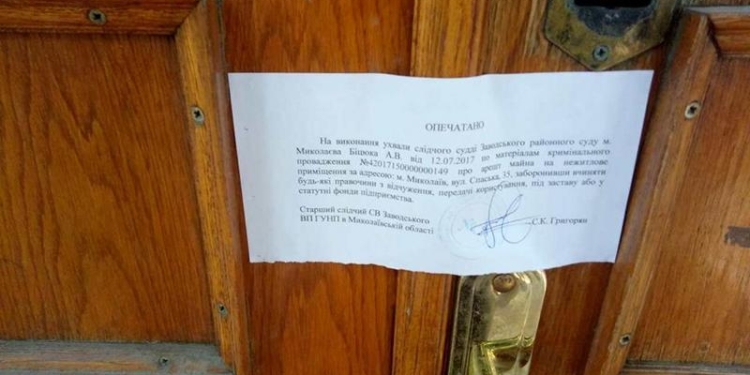 ОПЕЧАТАНО
На виконання ухвали слідчого судді Заводського районного суду м.
Миколаєва Біцюка А.В. від 12.07.2017 по матеріалам кримінального
провадження №42017150000000149 про арешт майна на нежитлове
приміщення за адресою: м. Миколаїв, вул. Спаська, 35, заборонивши вчиняти
будь-які правочини з відчуження, передачі користування, під заставу або у
статутні фонди підприємства.
Старший слідчий СВ Заводського
ВП ГУНП в Миколаївській області С.К. Григорян